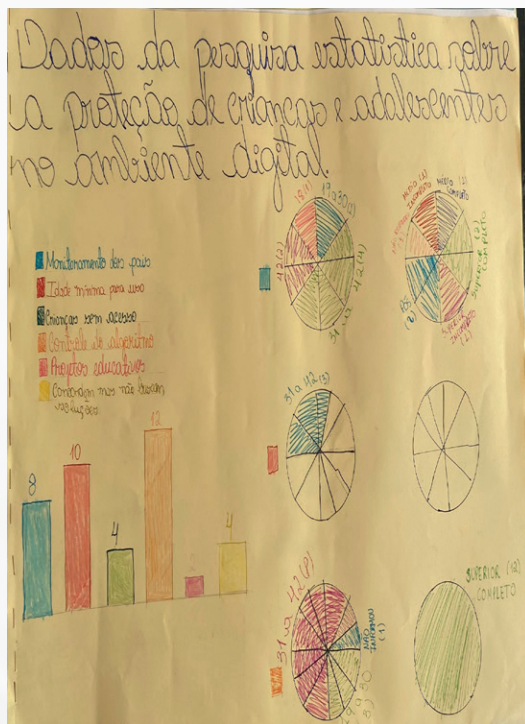 Dados da pesquisa estatística sobre
a proteção de crianças e adolescentes
no ambiente digital.
Monitoramento dos pais
Idade mínima para uso
Crianças sem acesso
Controle do algoritmo
Projetos educativos
Concordam mas não
8
10
4
12
4
31 a 42 (4)
MÉDIO (2)
INCOMPLETO
MÉDIO (2)
COMPLETO
SUPERIOR (2)
COMPLETO
SUPERIOR
INCOMPLETO
31 a 42 (3)
31 a 42 (8)
NÃO
INFORMOU
(1)
SUPERIOR (12)
COMPLETO